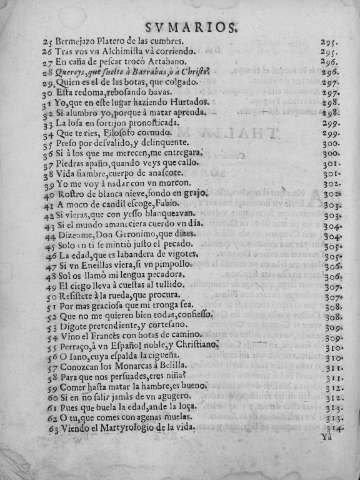 SVMARIOS.
25 Bermejazo Platero de las cumbres. 295.
26 Tras vos vn Alchimista và corriendo. 295.
27 En caña de pescar trocò Artabano. 296.
28 Quereys, que suelte à Barrabas, ò a Christo? 296.
29 Quien es el de las botas, que colgado. 297.
30 Esta redoma, rebosando bauas. 297.
31 Yo, que en este lugar haziendo Hurtados. 298.
32 Si alumbro yo, porque à matar aprenda. 298.
33 La losa en sortijon pronosticada. 299.
34 Que te ries, Filosofo cornudo. 299.
35 Preso por desvalido, y delinquente. 300.
36 Si à los que me merecen, me entregara. 300.
37 Piedras apaño, quando veys que callo. 301.
38 Vida fiambre, cuerpo de anascote. 301.
39 Yo me voy à nadar con vn morcon. 301.
40 Rostro de blanca nieue, fondo en grajo. 302.
41 A moco de candil escoge, Fabio. 302.
42 Si vieras, que con yesso blanqueavan. 303.
43 Si el mundo amaneciera cuerdo vn dia. 303.
44 Dizenme, Don Geronimo, que dizes. 304.
45 Solo en ti se mintiò justo el pecado. 304.
46 La edad, que es labandera de vigotes. 305.
47 Si vn Eneillas viera, si vn pimpollo. 305.
48 Sol os llamò mi lengua pecadora. 306.
49 El ciego lleva à cuestas al tullido. 306.
50 Resistete à la rueda, que procura. 307.
51 Por mas graciosa que mi tronga sea. 307.
52 Que no me quieren bien todas, confiesso. 308.
53 Digote pretendiente, y cortesano. 308.
54 Vino el Francès con botas de camino. 309.
55 Perrazo, à vn Español noble, y Christiano? 309.
56 O Iano, cuya espalda la cigueña. 310.
57 Conozcan los Monarcas à Belilla. 311.
58 Para que nos persuades, eres niña? 311.
59 Comer hasta matar la hambre, es bueno. 312.
60 Si en no salir jamàs de vn agugero. 312.
61 Pues que buela la edad, ande la loça. 313.
62 O tu, que comes con agenas muelas. 313.
63 Viendo el Martyrologio de la vida. 314.
Ya